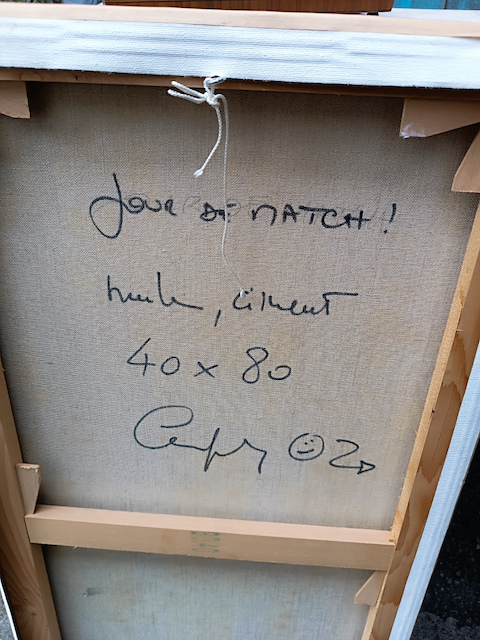 Jour de MATCH !
huile, ciment
40 x 80
02